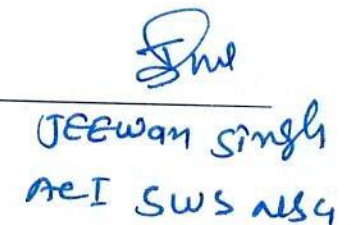 JEEWAN Singh
ACI SWS NSG